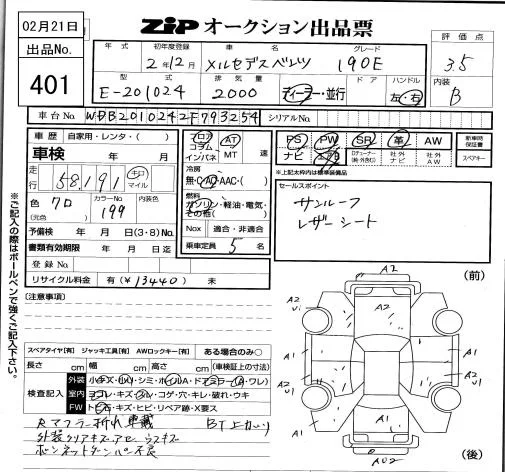 02月21日
ZIP オークション出品票
出品No.
401
年式 初年度登録 車名 グレード 評価点
2年12月 メルセデスベンツ 190E 35
型式 排気量 ドア ハンドル 内装
E-201024 2000 ディーラー・並行 左・右 B
車台No. WDB2010242F793254 シリアルNo.
車歴 自家用・レンタ・( ) フロア コラム インパネ AT MT 速 PS PW SR 革 AW 新車時保証書
車検 年 月 ナビ エアB 社外ナビ 社外AW スペアキー
※上記太枠内は標準装備品
走行 58,191 キロ マイル 冷房 無・AC・AAC・( )
セールスポイント
色 クロ カラーNo. 199 内装色 燃料 ガソリン・軽油・電気・その他( )
サンルーフ
(元色)
レザーシート
予備検 年 月 日(3・8)No. Nox 適合・非適合
書類有効期限 年 月 日迄 乗車定員 5 名
登録No.
リサイクル料金 有(¥13440) 未
(注意事項)
(前)
A2
A2
A1
A1
A1
A2
スペアタイヤ[有] ジャッキ工具[有] AWロックキー[有] ある場合のみ○
長さ cm 幅 cm 高さ cm (車検証上の寸法)
検査記入
外装
室内
FW トビ石・キズ・ヒビ・リペア跡・X要ス
Rマフラー折れ車載
ボンネットダンパー不良
(後)
※ご記入の際はボールペンで強くご記入下さい。